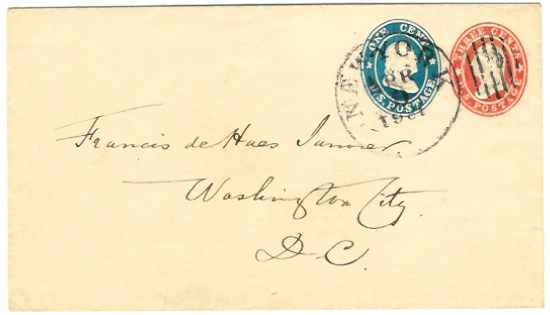 ONE CENT
U.S. POSTAGE
THREE CENTS
U.S. POSTAGE
NEW YORK
1861
Francis de Haes Janvier
Washington City
D.C.